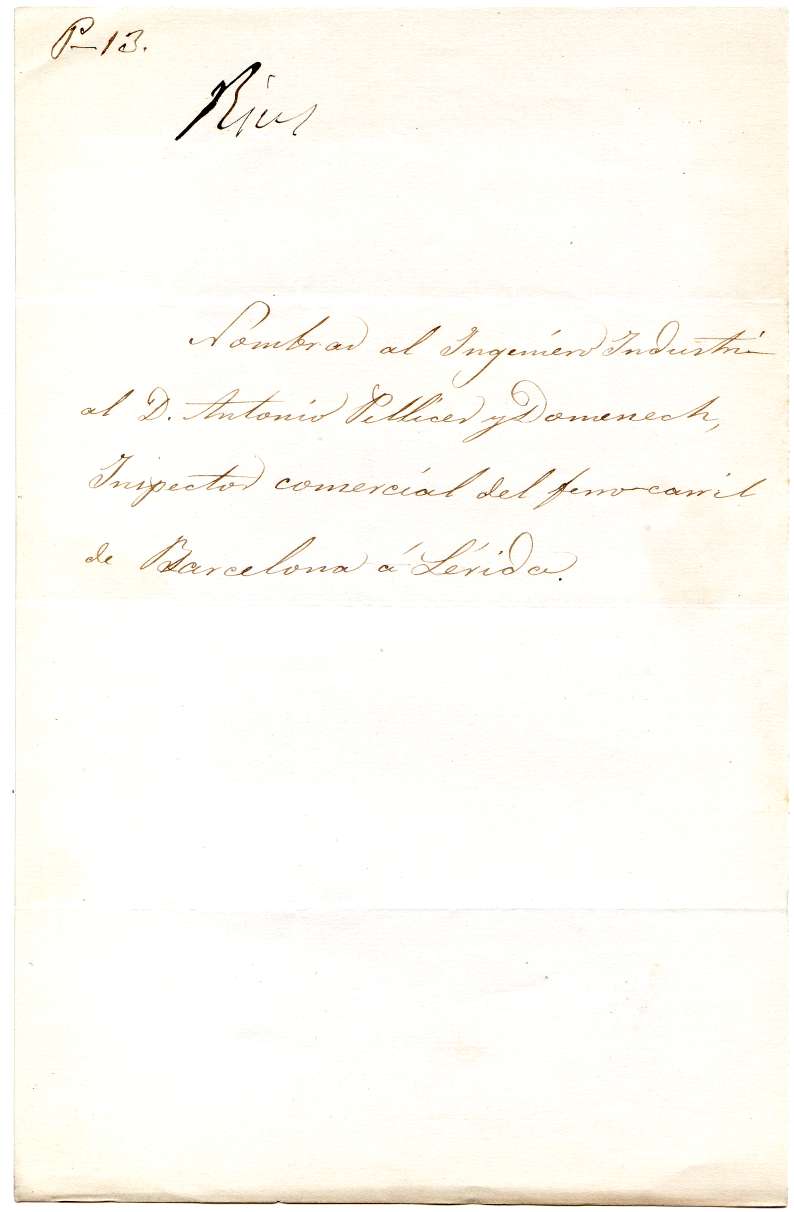 P-13.
Rius
Nombrar al Ingeniero Industri-
al D. Antonio Pellicer y Domenech,
Inspector comercial del ferro-carril
de Barcelona á Lérida.